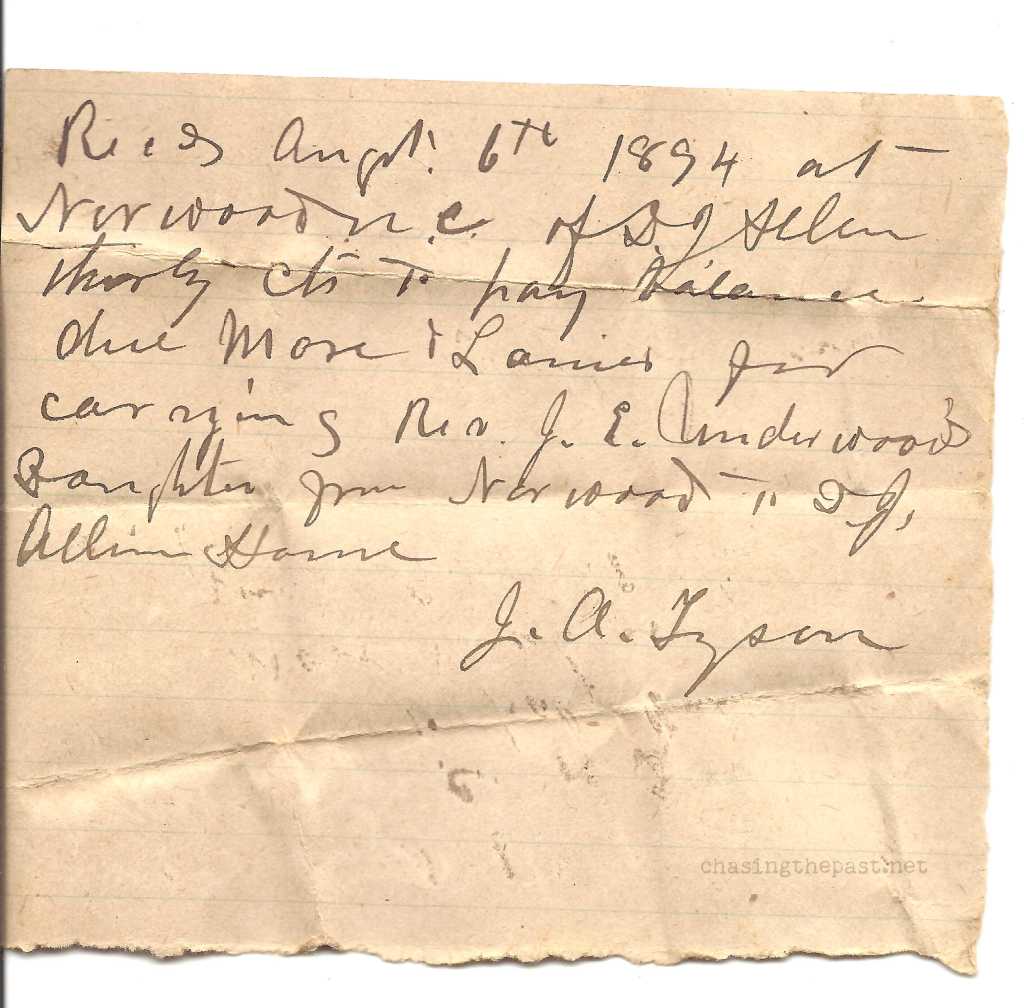 Recd Augst 6th 1894 at
Norwood N.C. of D.J Allen
thirty cts to pay balance
due More & Lanier for
carrying Rev. J. E. Underwoods
Daughter from Norwood to D.J.
Allen Home
J. A. Tyson
chasingthepast.net